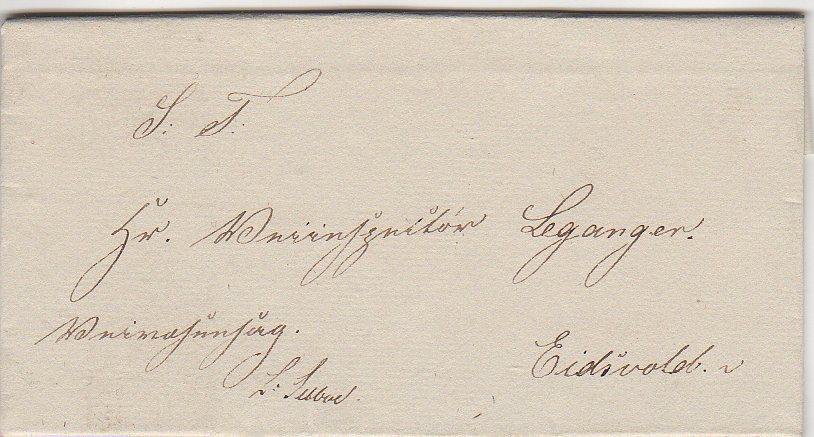 S: T:
Hr. Veiinspectør Leganger.
Veivæsensag.
Eidsvold.